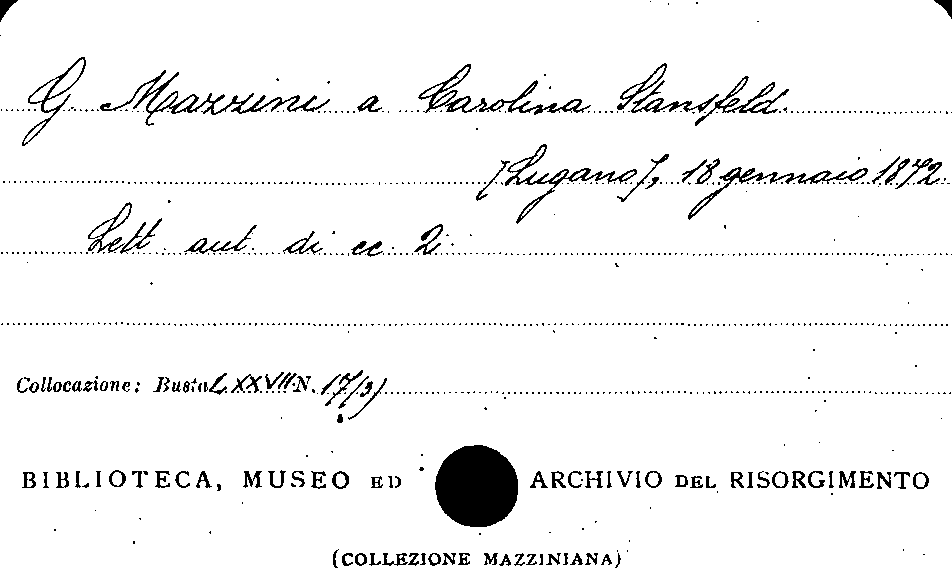 G. Mazzini a Carolina Stansfeld.
[Lugano], 18 gennaio 1872.
Lett. aut. di cc. 2.
Collocazione: Busta LXXVII N. 17/3)
BIBLIOTECA, MUSEO ED ARCHIVIO DEL RISORGIMENTO
(COLLEZIONE MAZZINIANA)